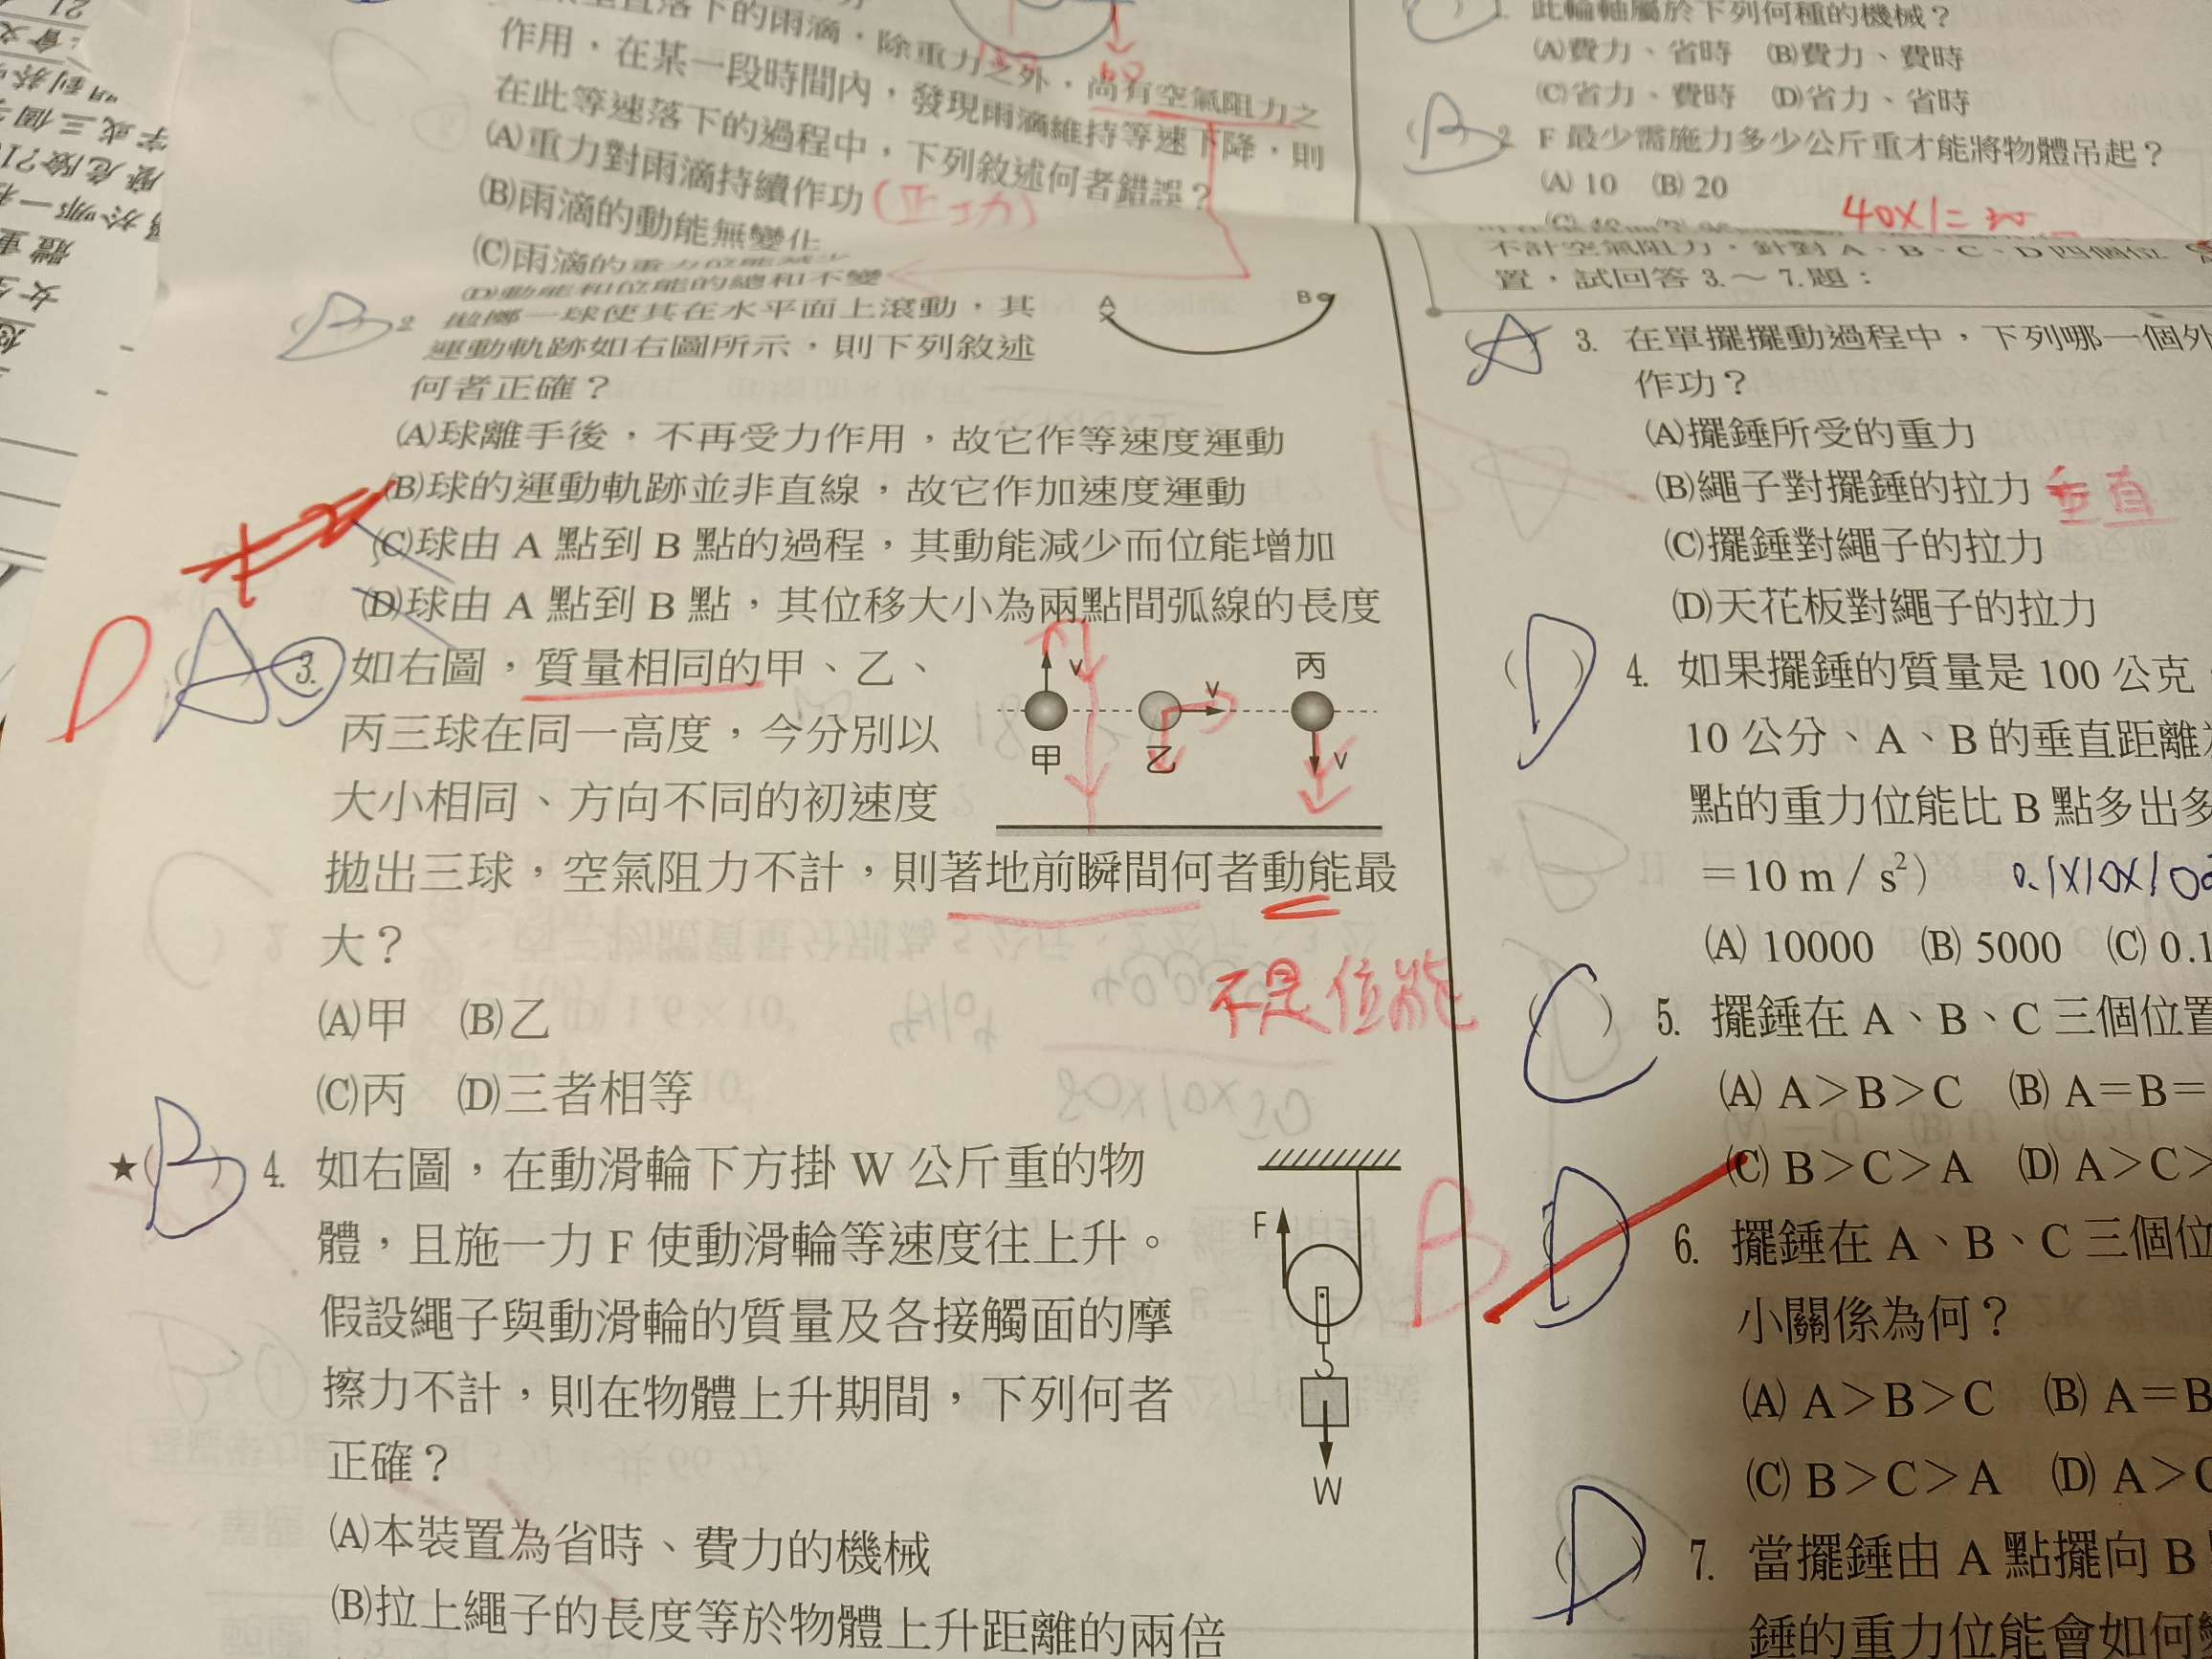 直落下的雨滴，除重力之外，尚有空氣阻力之
作用，在某一段時間內，發現雨滴維持等速下降，則
在此等速落下的過程中，下列敘述何者錯誤？
(A)重力對雨滴持續作功(正功)
(B)雨滴的動能無變化
(C)雨滴的重力位能減少
(D)動能和位能的總和不變
(B) 2. 拋擲一球使其在水平面上滾動，其
運動軌跡如右圖所示，則下列敘述
何者正確？
A B
(A)球離手後，不再受力作用，故它作等速度運動
(B)球的運動軌跡並非直線，故它作加速度運動
(C)球由 A 點到 B 點的過程，其動能減少而位能增加
(D)球由 A 點到 B 點，其位移大小為兩點間弧線的長度
D A 3. 如右圖，質量相同的甲、乙、
丙三球在同一高度，今分別以
大小相同、方向不同的初速度
拋出三球，空氣阻力不計，則著地前瞬間何者動能最
大？
v v 丙
甲 乙 v
不是位能
(A)甲 (B)乙
(C)丙 (D)三者相等
★(B) 4. 如右圖，在動滑輪下方掛 W 公斤重的物
體，且施一力 F 使動滑輪等速度往上升。
假設繩子與動滑輪的質量及各接觸面的摩
擦力不計，則在物體上升期間，下列何者
正確？
F
W
(A)本裝置為省時、費力的機械
(B)拉上繩子的長度等於物體上升距離的兩倍
1. 此輪軸屬於下列何種的機械？
(A)費力、省時 (B)費力、費時
(C)省力、費時 (D)省力、省時
(B) 2. F 最少需施力多少公斤重才能將物體吊起？
(A) 10 (B) 20
40×1=
不計空氣阻力，針對 A、B、C、D 四個位
置，試回答 3.～7.題：
(A) 3. 在單擺擺動過程中，下列哪一個外
作功？
(A)擺錘所受的重力
(B)繩子對擺錘的拉力 垂直
(C)擺錘對繩子的拉力
(D)天花板對繩子的拉力
(D) 4. 如果擺錘的質量是 100 公克
10 公分、A、B 的垂直距離
點的重力位能比 B 點多出多
＝10 m／s²） 0.1×10×1
(A) 10000 (B) 5000 (C) 0.1
(C) 5. 擺錘在 A、B、C 三個位置
(A) A＞B＞C (B) A＝B＝
(C) B＞C＞A (D) A＞C＞
B (D) 6. 擺錘在 A、B、C 三個位
小關係為何？
(A) A＞B＞C (B) A＝B
(C) B＞C＞A (D) A＞C
(D) 7. 當擺錘由 A 點擺向 B
錘的重力位能會如何